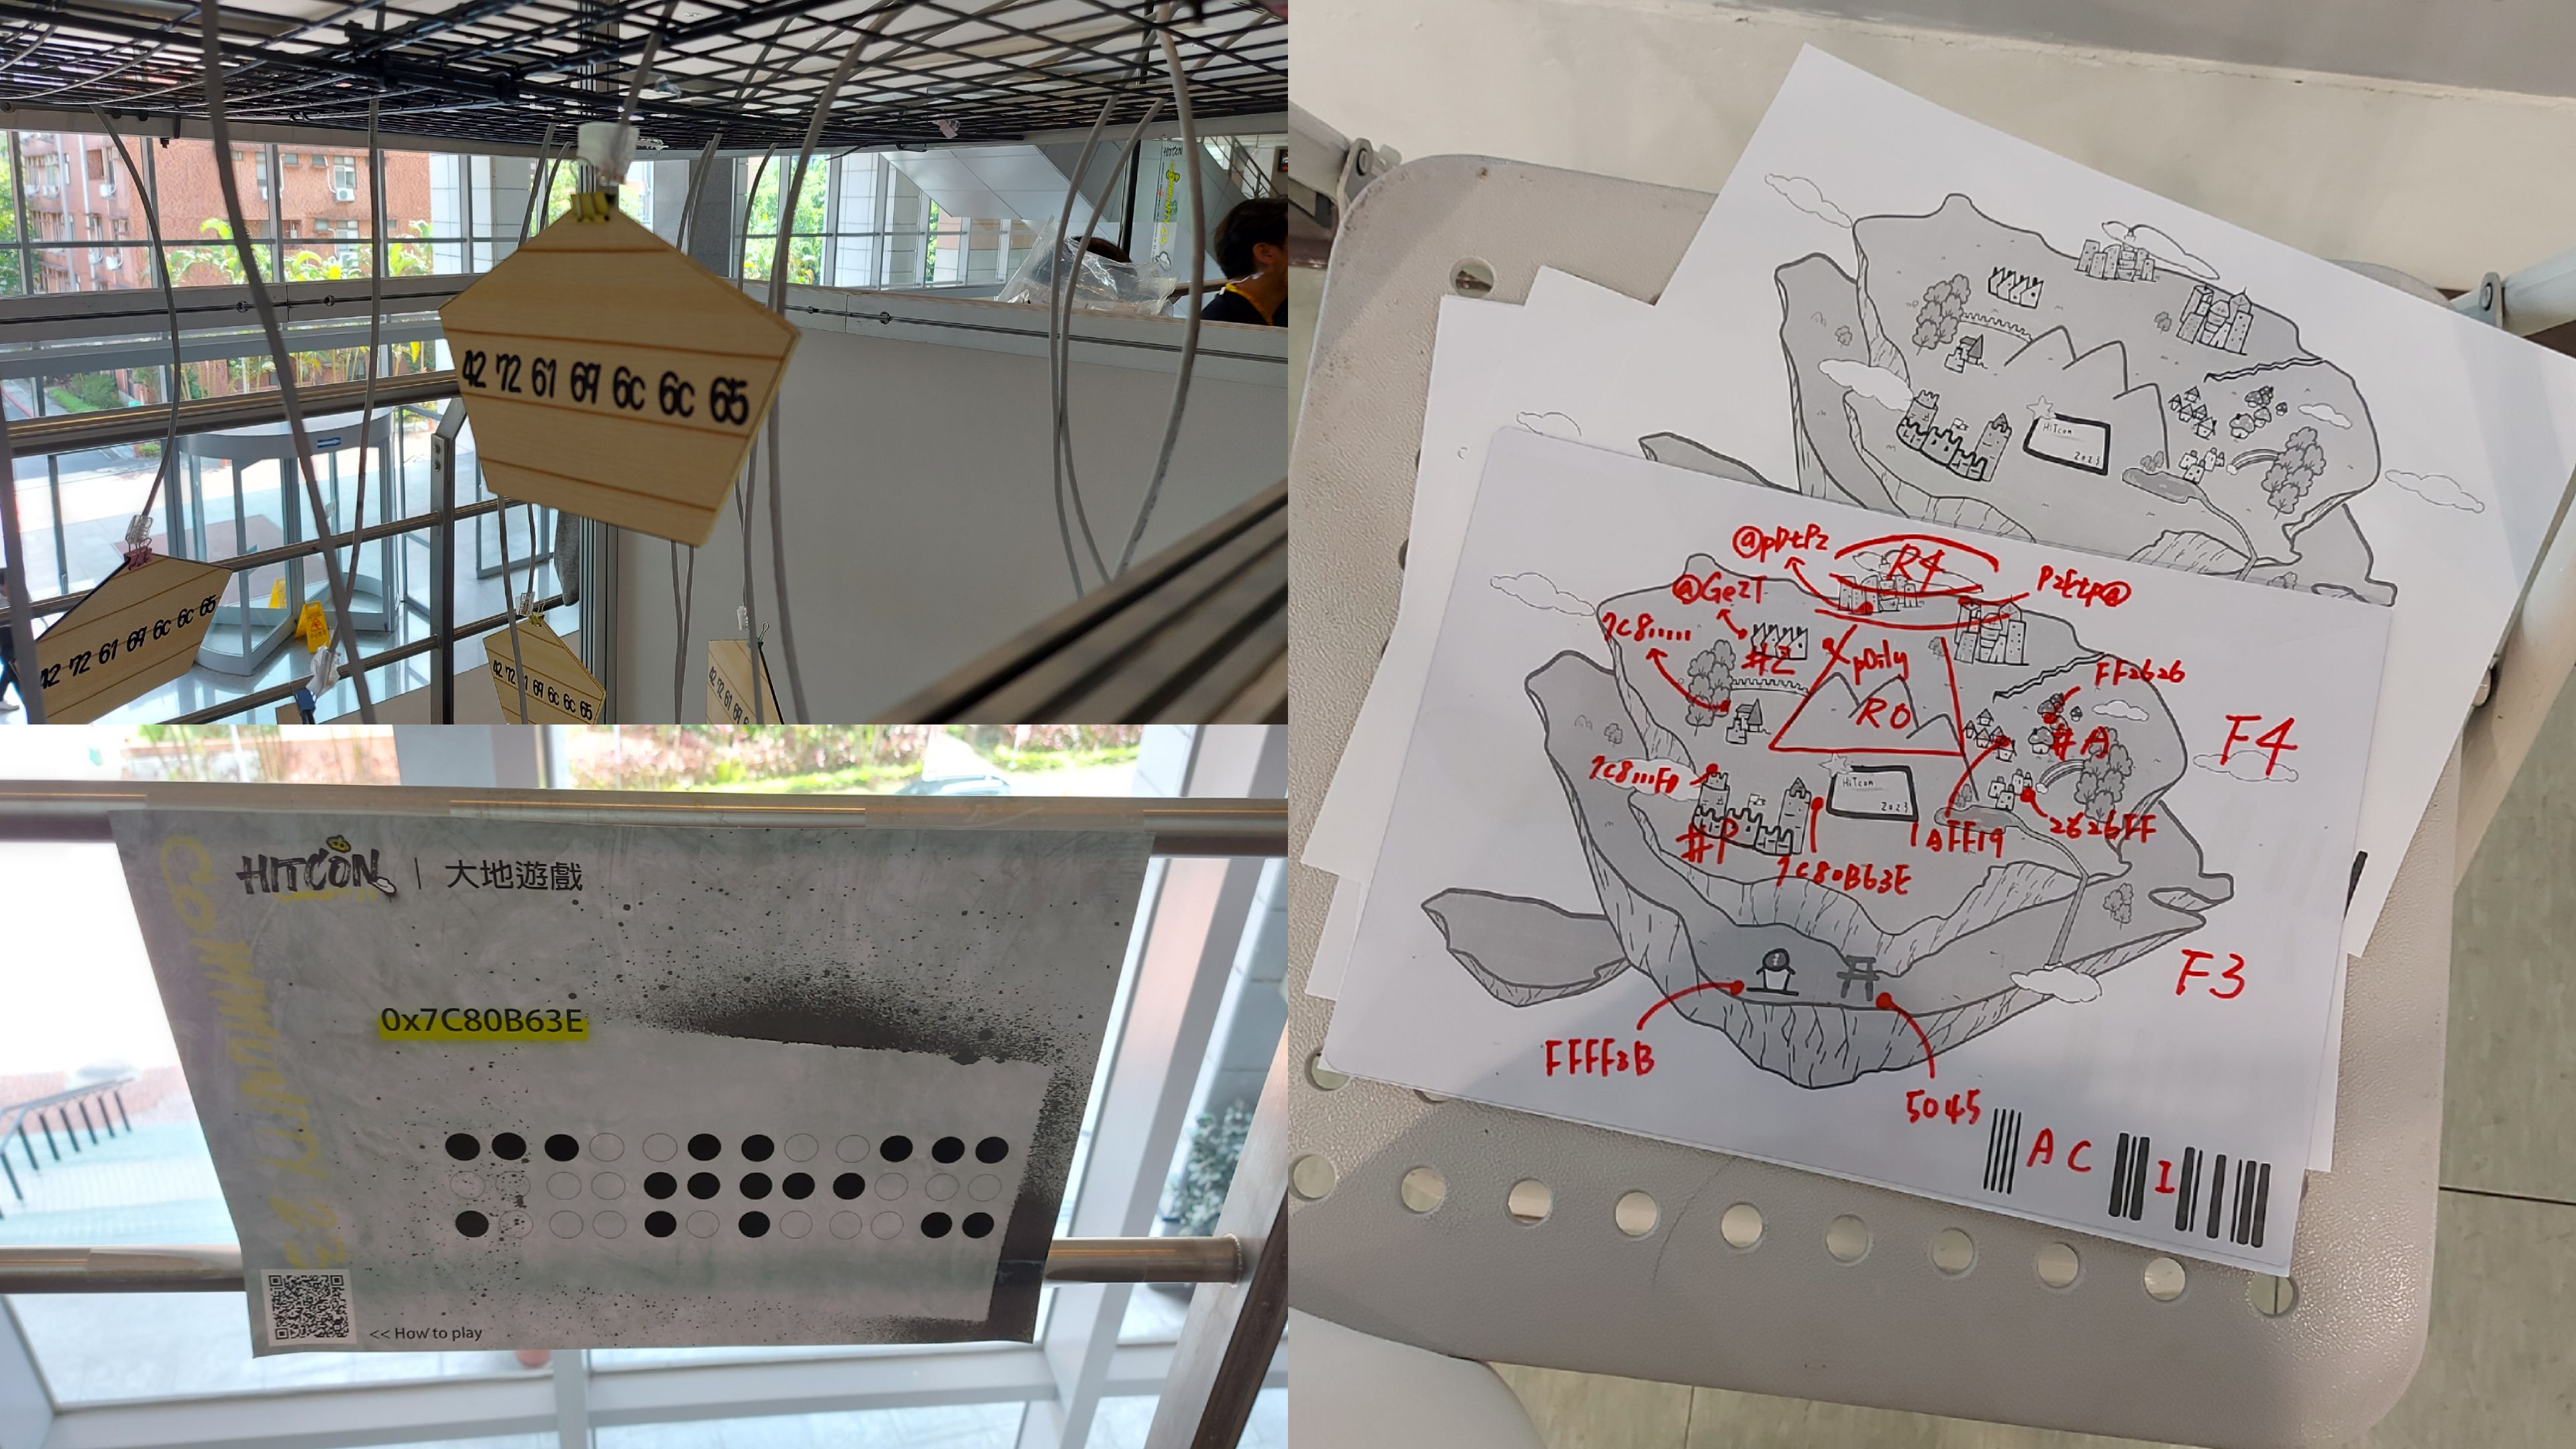 42 72 61 69 6c 6c 65
42 72 61 69 6c 6c 65
42 72 61 69 6c 6c 65
42 72 61 69
HITCON
HITCON | 大地遊戲
COMMUNITY 23
0x7C80B63E
<< How to play
HiTCON
2023
@pDtPz
R4
PzEtp@
@GezT
7C8.....
#Z
pDily
R0
FF2626
#A
F4
7C8...F0
#P
HiTCON
2023
7C80B63E
AFF19
2626FF
F3
FFFF3B
5045
A C I